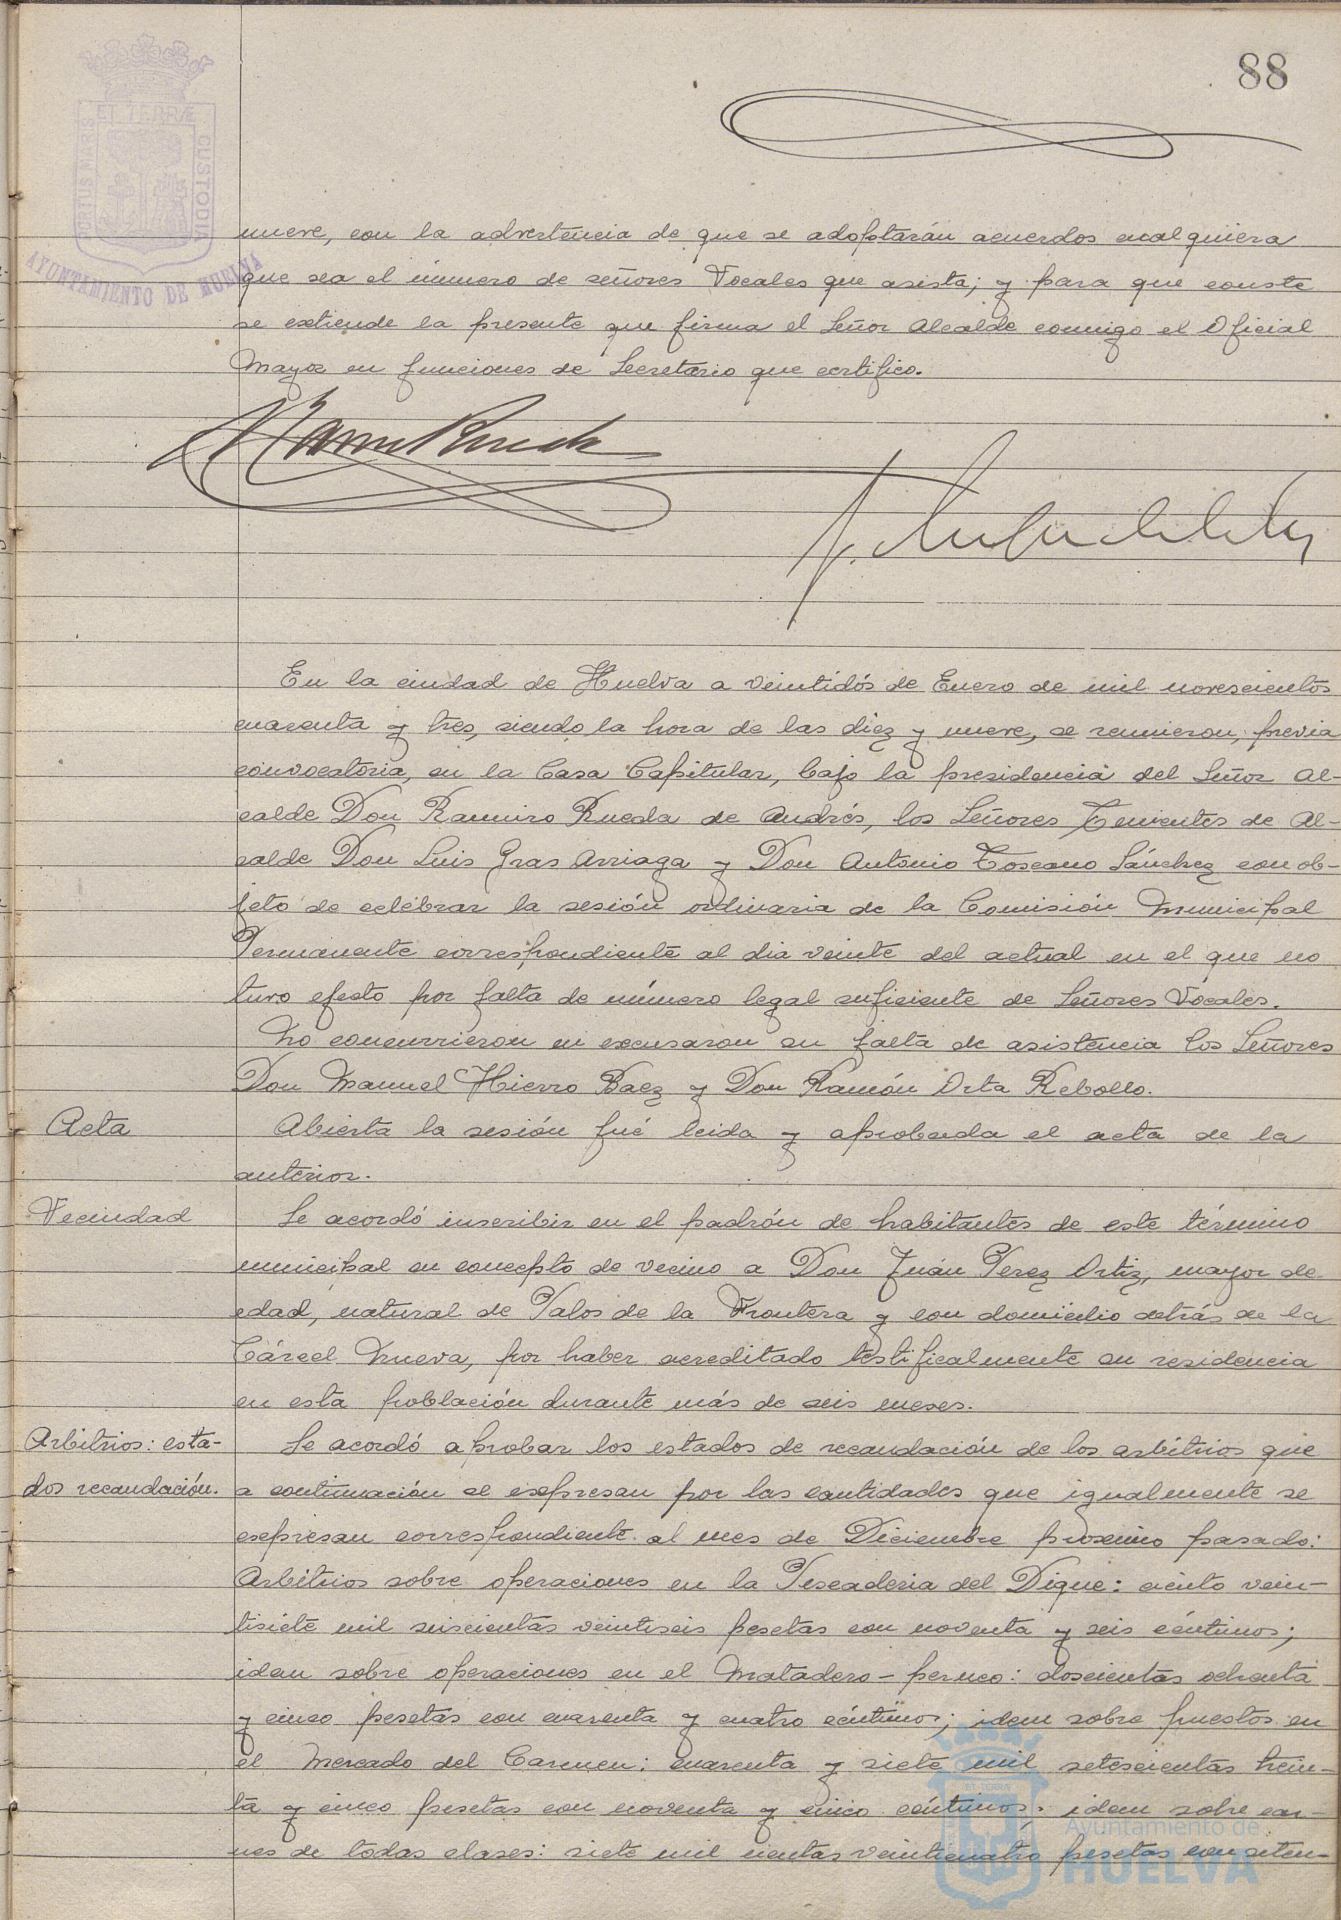 88
PORTUS MARIS ET TERRÆ CUSTODIA
AYUNTAMIENTO DE HUELVA
nueve, con la advertencia de que se adoptarán acuerdos cualquiera
que sea el número de señores Vocales que asista; y para que conste
se extiende la presente que firma el Señor Alcalde conmigo el Oficial
Mayor en funciones de Secretario que certifico.
En la ciudad de Huelva a veintidós de Enero de mil novescientos
cuarenta y tres, siendo la hora de las diez y nueve, se reunieron, previa
convocatoria, en la Casa Capitular, bajo la presidencia del Señor Al-
calde Don Ramiro Rueda de Andrés, los Señores Tenientes de Al-
calde Don Luis Gras Arriaga y Don Antonio Toscano Sánchez con ob-
jeto de celebrar la sesión ordinaria de la Comisión Municipal
Permanente correspondiente al dia veinte del actual en el que no
tuvo efecto por falta de número legal suficiente de Señores Vocales.
No concurrieron ni excusaron su falta de asistencia los Señores
Don Manuel Hierro Baez y Don Ramón Orta Rebollo.
Acta
Abierta la sesión fué leida y aprobada el acta de la
anterior.
Vecindad
Se acordó inscribir en el padrón de habitantes de este término
municipal en concepto de vecino a Don Juán Perez Ortiz, mayor de
edad, natural de Palos de la Frontera y con domicilio detrás de la
Cárcel Nueva, por haber acreditado testificalmente su residencia
en esta población durante más de seis meses.
Arbitrios: esta-
dos recaudación.
Se acordó aprobar los estados de recaudación de los arbitrios que
a continuación se expresan por las cantidades que igualmente se
expresan correspondiente al mes de Diciembre proximo pasado:
Arbitrios sobre operaciones en la Pescaderia del Dique: ciento vein-
tisiete mil seiscientas veintiseis pesetas con noventa y seis céntimos;
idem sobre operaciones en el Matadero-perneo: doscientas ochenta
y cinco pesetas con cuarenta y cuatro céntimos; idem sobre puestos en
el Mercado del Carmen: cuarenta y siete mil setescientas trein-
ta y cinco pesetas con noventa y cinco céntimos; idem sobre car-
nes de todas clases: siete mil cientas veinticuatro pesetas con seten-
Ayuntamiento de
HUELVA